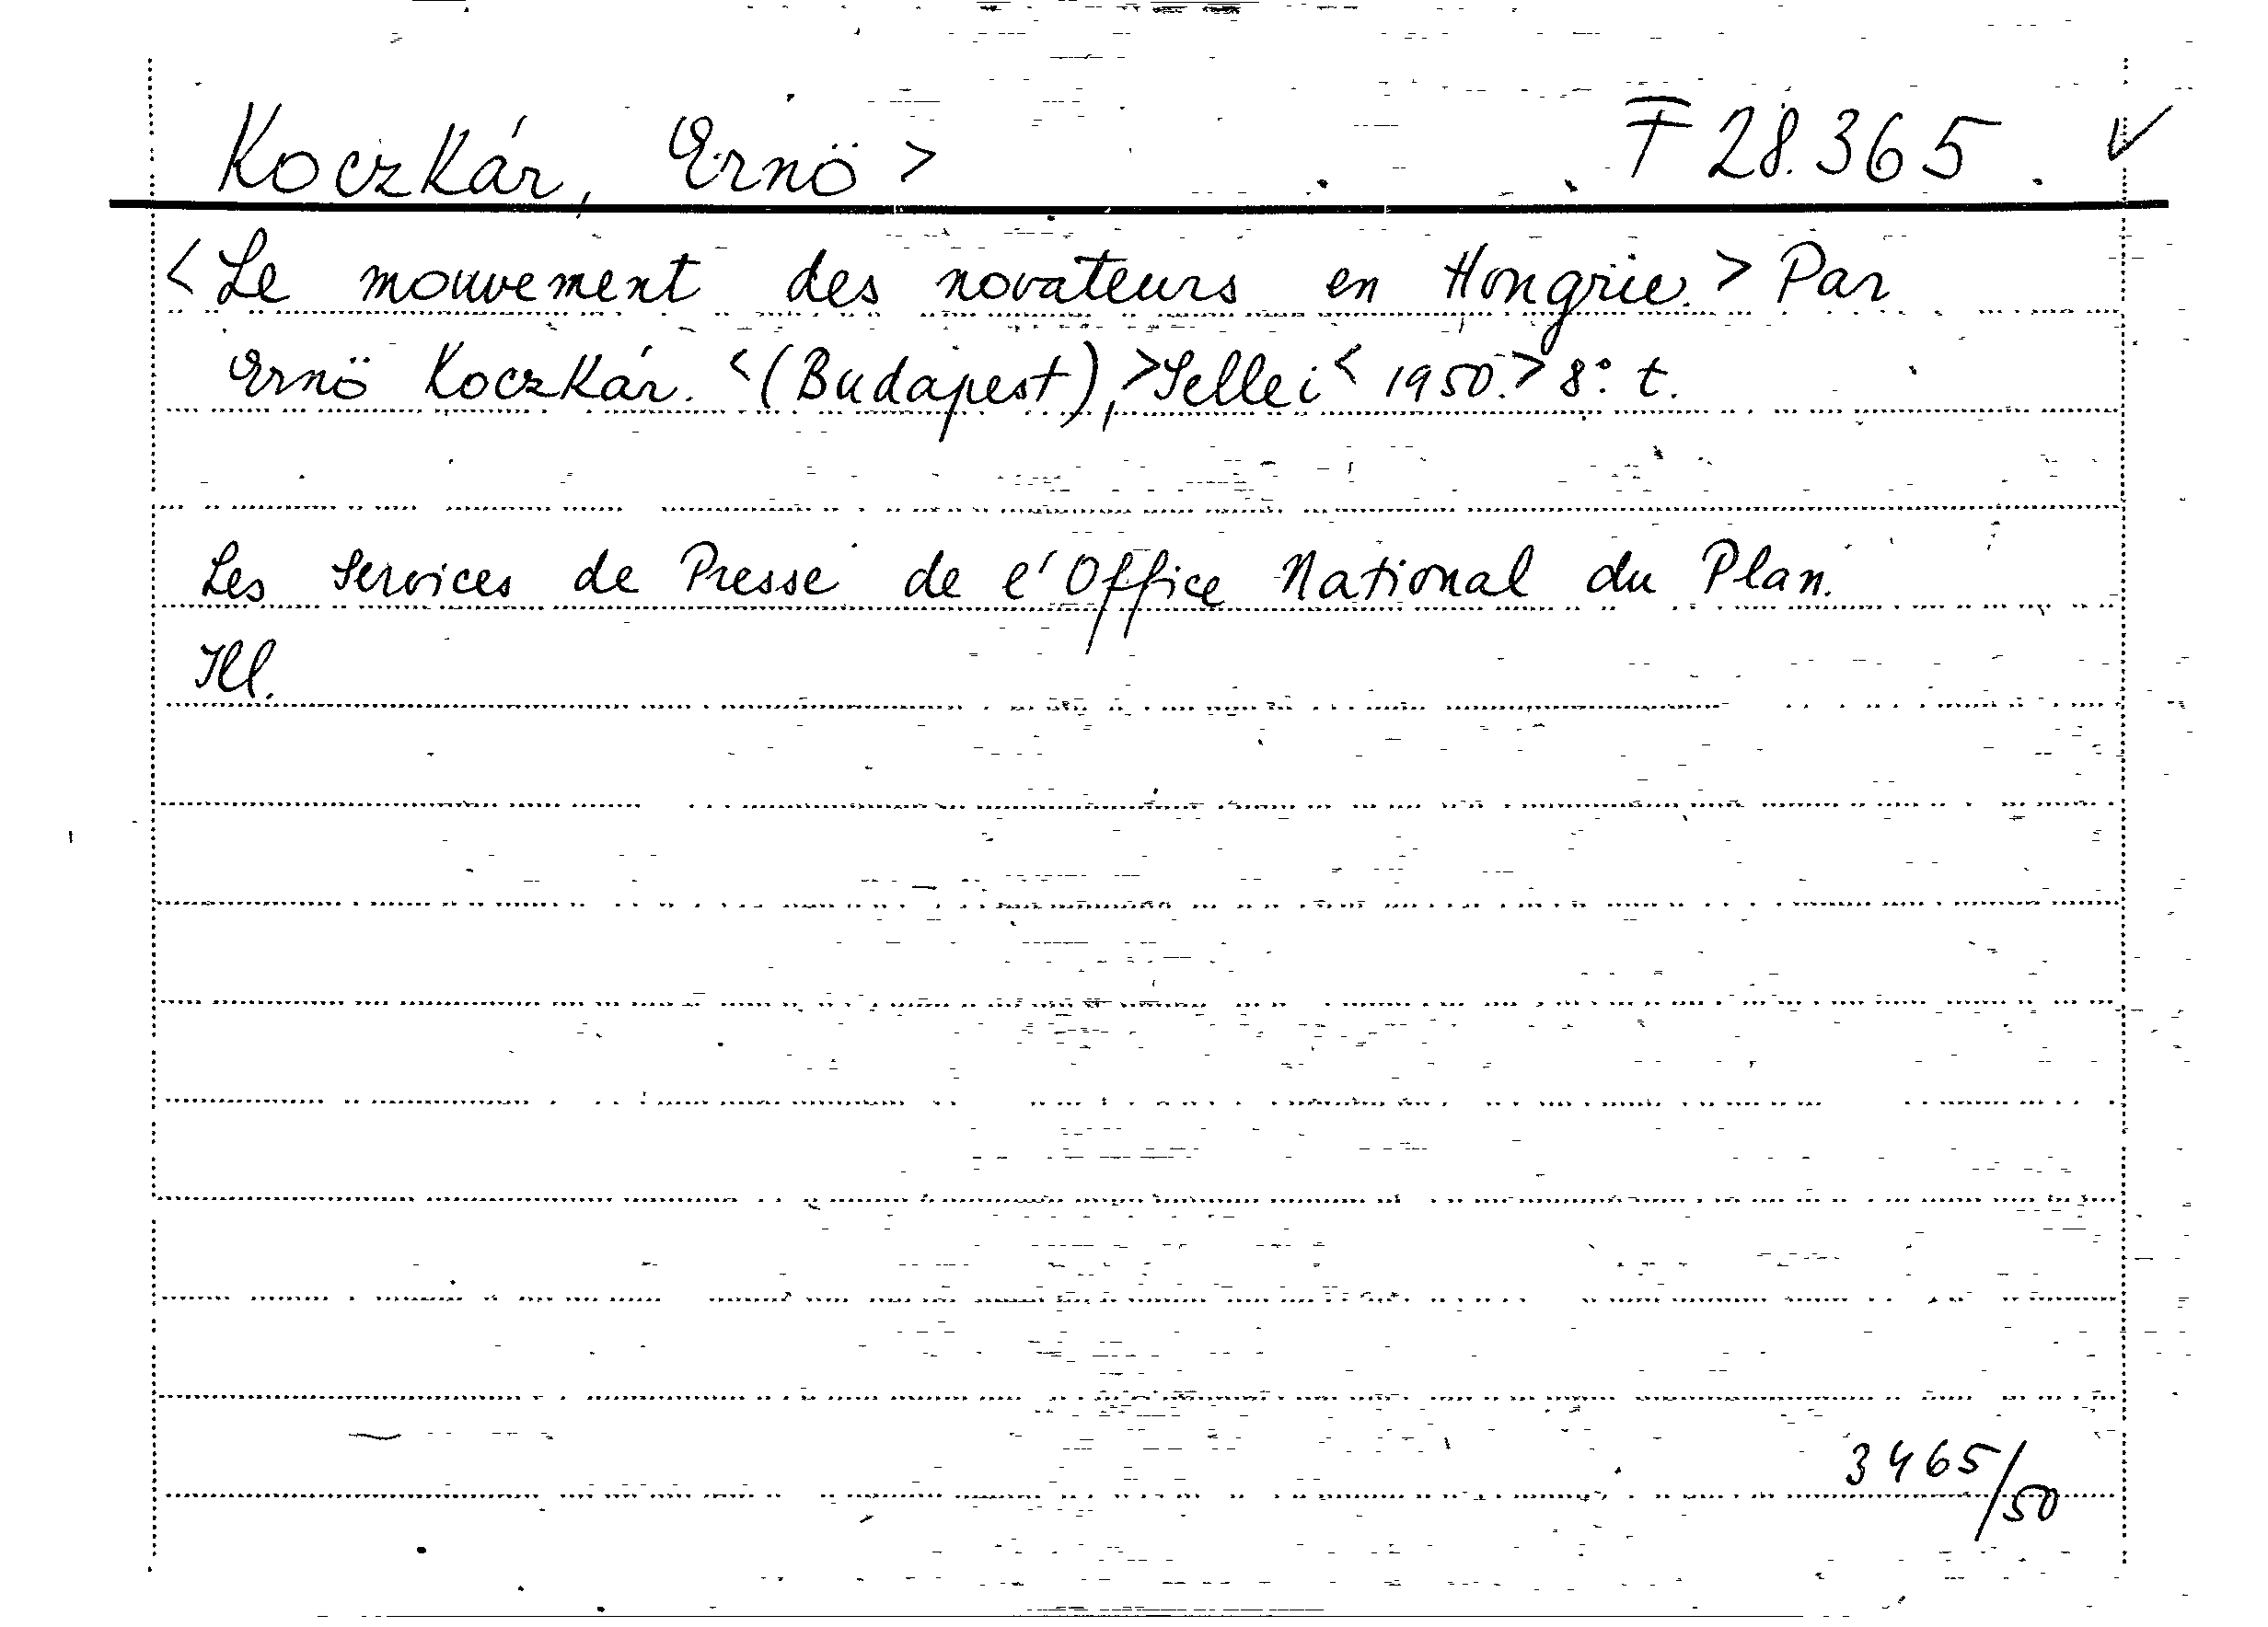 Koczkár, Ernö > F 28.365. ✓
<Le mouvement des novateurs en Hongrie.> Par
Ernö Koczkár. <(Budapest),> Sellei < 1950.> 8° t.
Les Services de Presse de l'Office National du Plan.
Ill.
3465/50